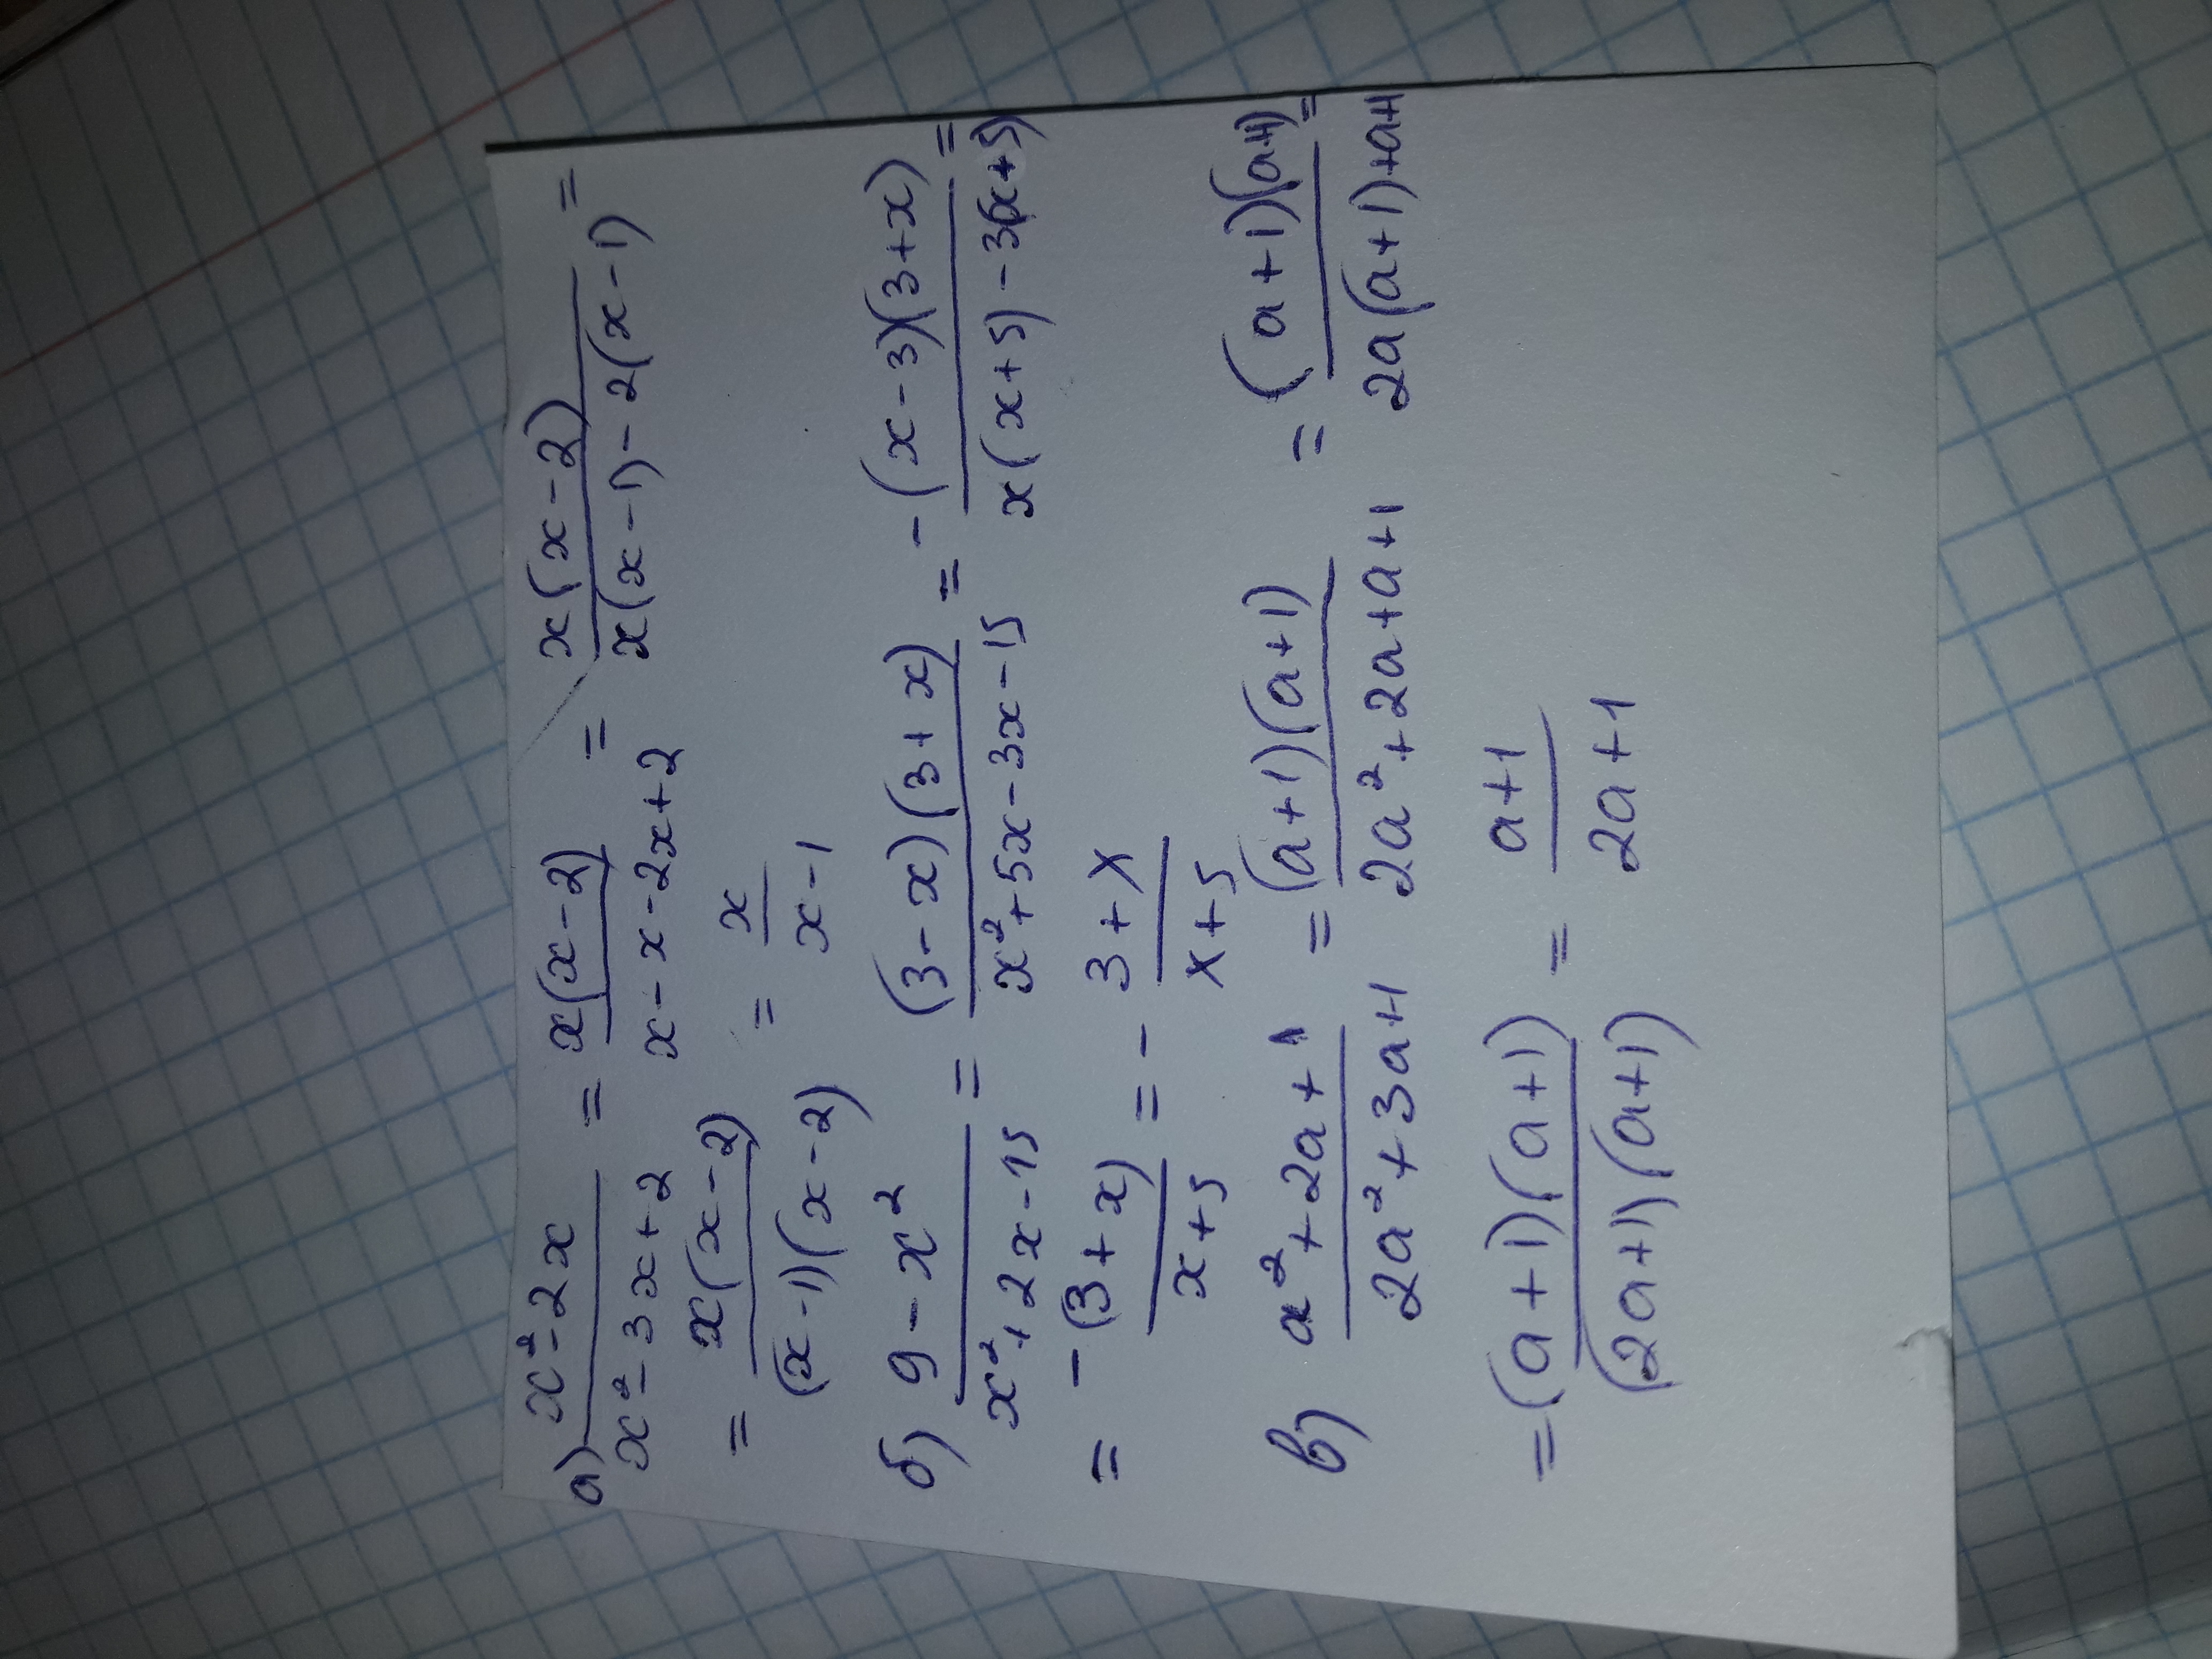 а) (x² - 2x)/(x² - 3x + 2) = x(x - 2)/(x - x - 2x + 2) = x(x - 2)/(x(x - 1) - 2(x - 1)) =
= x(x - 2)/((x - 1)(x - 2)) = x/(x - 1)
б) (9 - x²)/(x² + 2x - 15) = (3 - x)(3 + x)/(x² + 5x - 3x - 15) = -(x - 3)(3 + x)/(x(x + 5) - 3(x + 5)) =
= -(3 + x)/(x + 5) = - (3 + x)/(x + 5)
в) (a² + 2a + 1)/(2a² + 3a + 1) = (a + 1)(a + 1)/(2a² + 2a + a + 1) = (a + 1)(a + 1)/(2a(a + 1) + a + 1) =
= (a + 1)(a + 1)/((2a + 1)(a + 1)) = (a + 1)/(2a + 1)